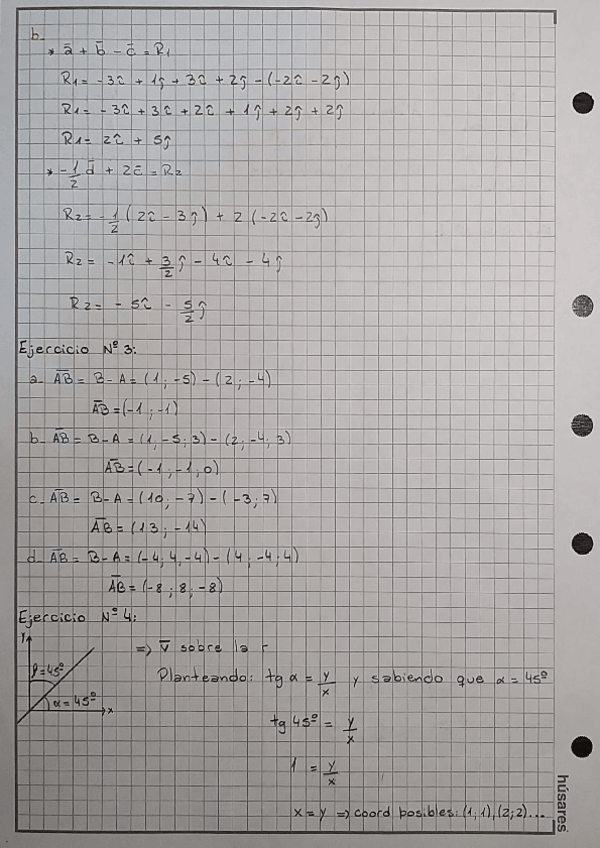 b_
* a̅ + b̅ - c̅ = R₁
R₁ = -3î + 1ĵ + 3î + 2ĵ - (-2î - 2ĵ)
R₁ = -3î + 3î + 2î + 1ĵ + 2ĵ + 2ĵ
R₁ = 2î + 5ĵ
* -1/2 d̅ + 2c̅ = R₂
R₂ = -1/2 (2î - 3ĵ) + 2 (-2î - 2ĵ)
R₂ = -1î + 3/2 ĵ - 4î - 4ĵ
R₂ = -5î - 5/2 ĵ
Ejercicio Nº 3:
a_ A̅B̅ = B-A = (1; -5) - (2; -4)
A̅B̅ = (-1; -1)
b_ A̅B̅ = B-A = (1; -5; 3) - (2; -4; 3)
A̅B̅ = (-1; -1; 0)
c_ A̅B̅ = B-A = (10; -7) - (-3; 7)
A̅B̅ = (13; -14)
d_ A̅B̅ = B-A = (-4; 4; -4) - (4; -4; 4)
A̅B̅ = (-8; 8; -8)
Ejercicio Nº 4:
y
β=45º
α=45º
x
=> v̅ sobre la r
Planteando: tg α = y/x y sabiendo que α = 45º
tg 45º = y/x
1 = y/x
x = y => coord posibles: (1;1), (2;2)...
húsares